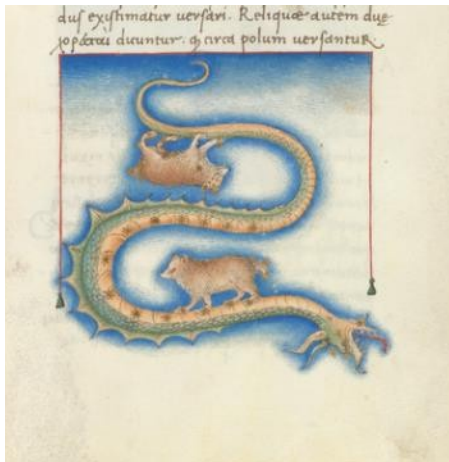 dus existimatur versari. Reliquæ autem duę
dicuntur. ꝙ circa polum versantur